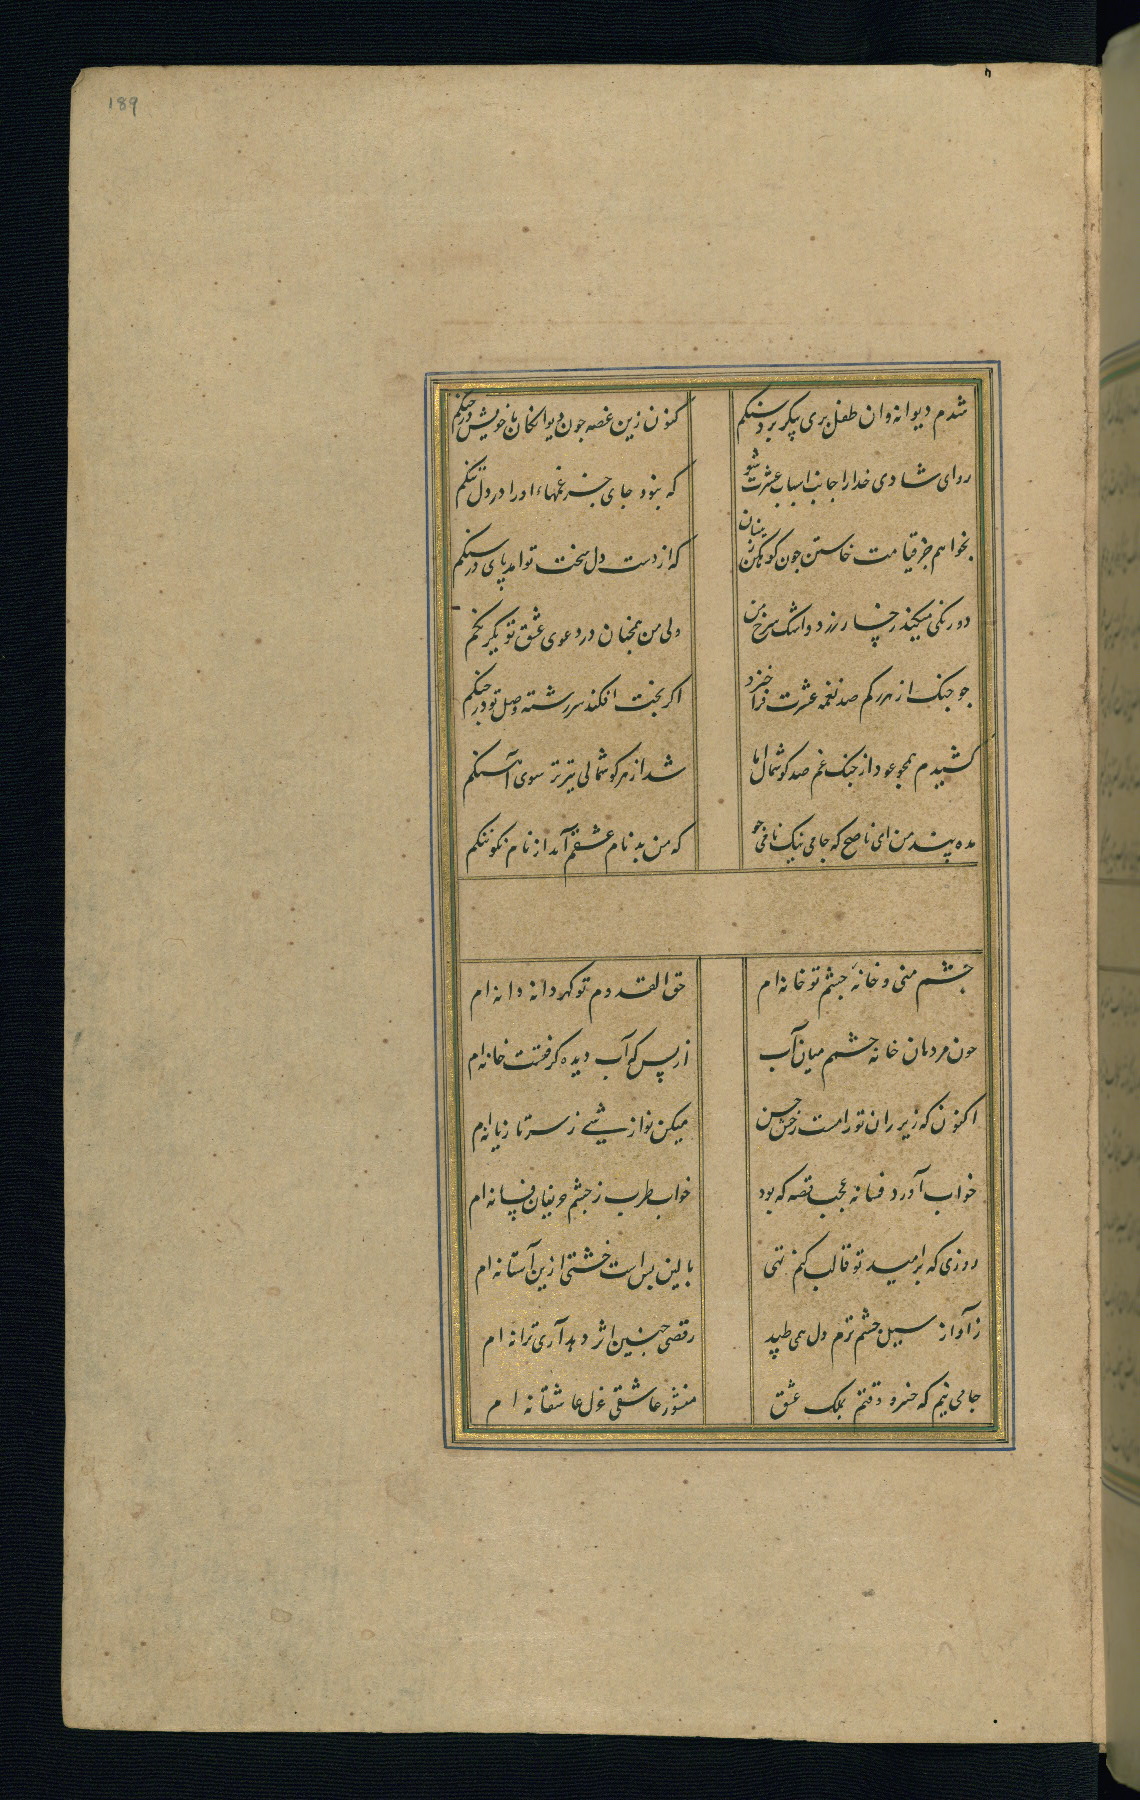 189
شدم دیوانه وان طفل پری پیکر نزد سنکم کنون زین غصه جون دیوانکان با خویش در جنکم
روای شادی خدارا جانب اسباب عشرت شو که نبود جای جز غمهاء او را در دل تنکم
نخواهم جز قیامت خاستن جون کوهکن زینسان که از دست دل سخت تو امد پای در سنکم
دو رنکی میکند رخسار زرد و اشک سرخ من ولی من همچنان در دعوی عشق تو یکرنکم
جو جنک از هر رکم صد نغمه عشرت فرا خیزد اکر بخت افکند سر رشته وصل تو در جنکم
کشیدم همچو عود از جنک غم صد کوشمال اما شد از هر کوشمالی تیزتر سوی تو آهنکم
مده پند من ای ناصح که جامی نیک نامی جو که من بد نام عشقم آمد از نام نکو ننکم
جشم منی و خانهٔ جشم تو خانه ام حق القدوم تو کهر دانه دانه ام
جون مردمان خانه جشمم میان آب از بس که آب دیده کرفتست خانه ام
اکنون که زیر ران تو رامست رخش حسن میکن نوازشی ز سر تازیانه ام
خواب آورد فسانه عجب قصه که بود خواب طرب ز جشم حریفان فسانه ام
روزی که بر امید تو قالب کنم تهی بالین بس است خشتی ازین آستانه ام
ز آواز سیل جشم ترم دل همی طپد رقصی جنین اثر دهد آری ترانه ام
جامی نیم که خسرو وقتم بملک عشق منشور عاشقی غزل عاشقانه ام